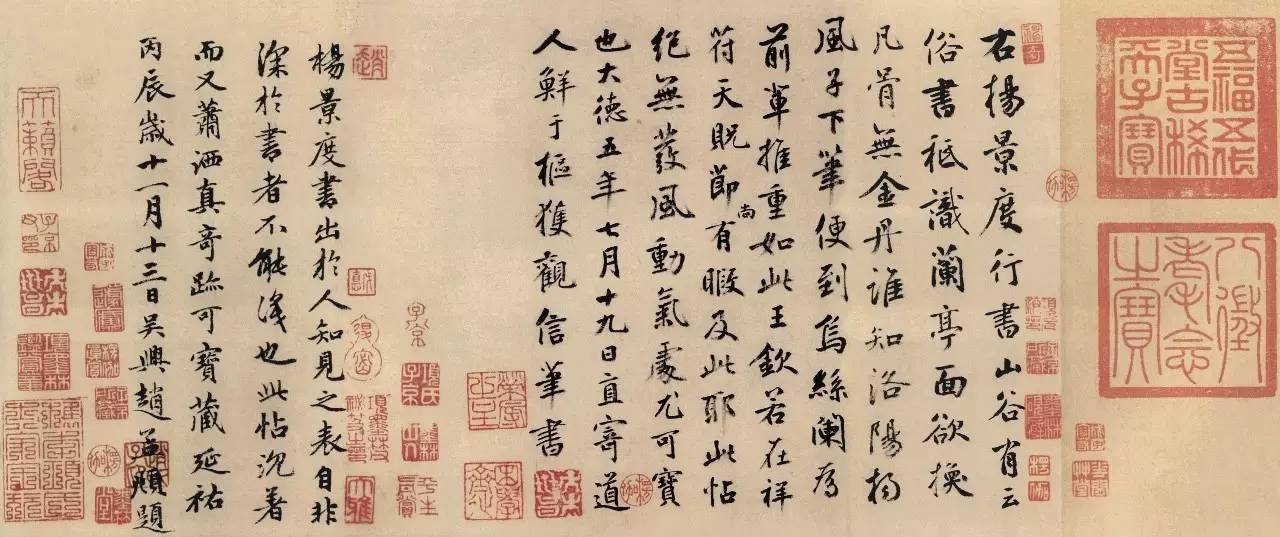 五福五代
堂古稀
天子寶
八徵
耄念
之寶
右楊景度行書山谷有云
俗書祗識蘭亭面欲換
凡骨無金丹誰知洛陽楊
風子下筆便到烏絲闌為
前輩推重如此王欽若在祥
符天貺節尚有暇及此耶此帖
絕無發風動氣處尤可寶
也大德五年七月十九日直寄道
人鮮于樞獲觀信筆書
楊景度書出於人知見之表自非
深於書者不能識也此帖沉著
而又蕭洒真奇跡可寶藏延祐
丙辰歲十一月十三日吳興趙孟頫題
天籟閣